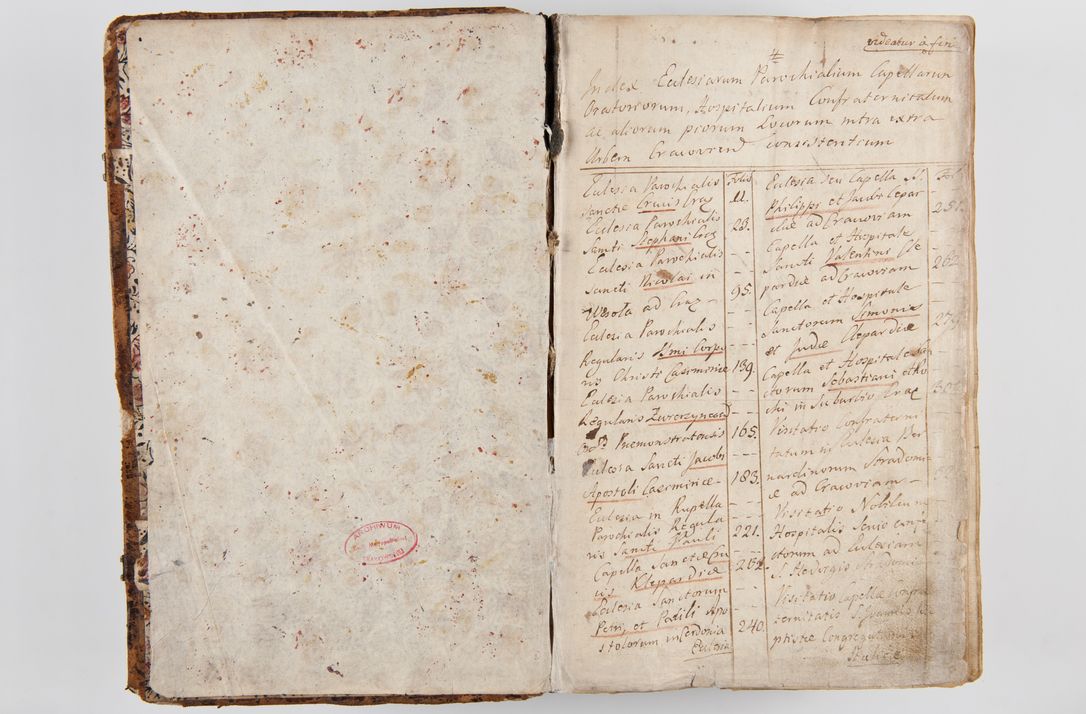 videatur à fine
Index Ecclesiarum Parochialium Capellarum
Oratoriorum, Hospitalium Confraternitatum
ac aliorum piorum Locorum intra extra
Urbem Cracovien consistentium
Ecclesia Parochialis
Sanctæ Crucis Crac
Folio
11.
Ecclesia Parochialis
Sancti Stephani Crac
23.
Ecclesia Parochialis
Sancti Nicolai in
Wesoła ad Crac
95.
Ecclesia Parochialis
Regularis Ssmi Corpo
ris Christi Casimiriæ
139.
Ecclesia Parochialis
Regularis Zwerzynecen
Præmonstratensis
165.
Ecclesia Sancti Jacobi
Apostoli Casimiriæ
183.
Ecclesia in Rupella
Parochialis Regula
ris Sancti Pauli
221.
Capella Sanctæ Cru
cis Klepardiæ
232.
Ecclesia Sanctorum
Petri, et Pauli Apo
stolorum in
240.
Ecclesia
Ecclesia seu Capella SS.
Philippi et Jacobi Clepar
diæ ad Cracoviam
Fol.
251.
Capella et Hospitale
Sancti Valentini Cle
pardiæ ad Cracoviam
262.
Capella et Hospitale
Sanctorum Simonis
et Judæ Clepardiæ
279.
Capella et Hospitale San
ctorum Sebastiani et Ro
chi in Suburbio Crac
Visitatio Confraterni
tatum in Ecclesia Ber
nardinorum Stradomi
æ ad Cracoviam
Visitatio Nobilium
Hospitalis Senio conf
ctorum ad Ecclesiam
S. Hedvigis Stradomi
Visitatio Capellæ Confra
ternitatis S. Joannis Ba
ptistæ Congregationis
Italicæ
ARCHIWUM